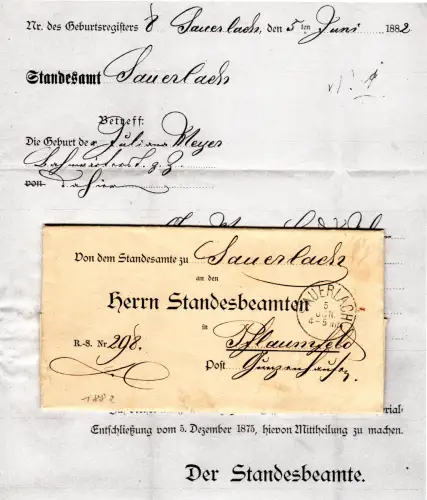 Nr. des Geburtsregisters 8 Sauerlach, den 5ten Juni 1882
Standesamt Sauerlach
Betreff:
Die Geburt der Juliana Meyer
von
Von dem Standesamte zu Sauerlach
an den
Herrn Standesbeamten
in
R.-S. Nr. 298. Pflaumfeld
Post Gunzenhausen
SAUERLACH
5
JUN.
4-5
1882
Entschließung vom 5. Dezember 1875, hievon Mittheilung zu machen.
Der Standesbeamte.